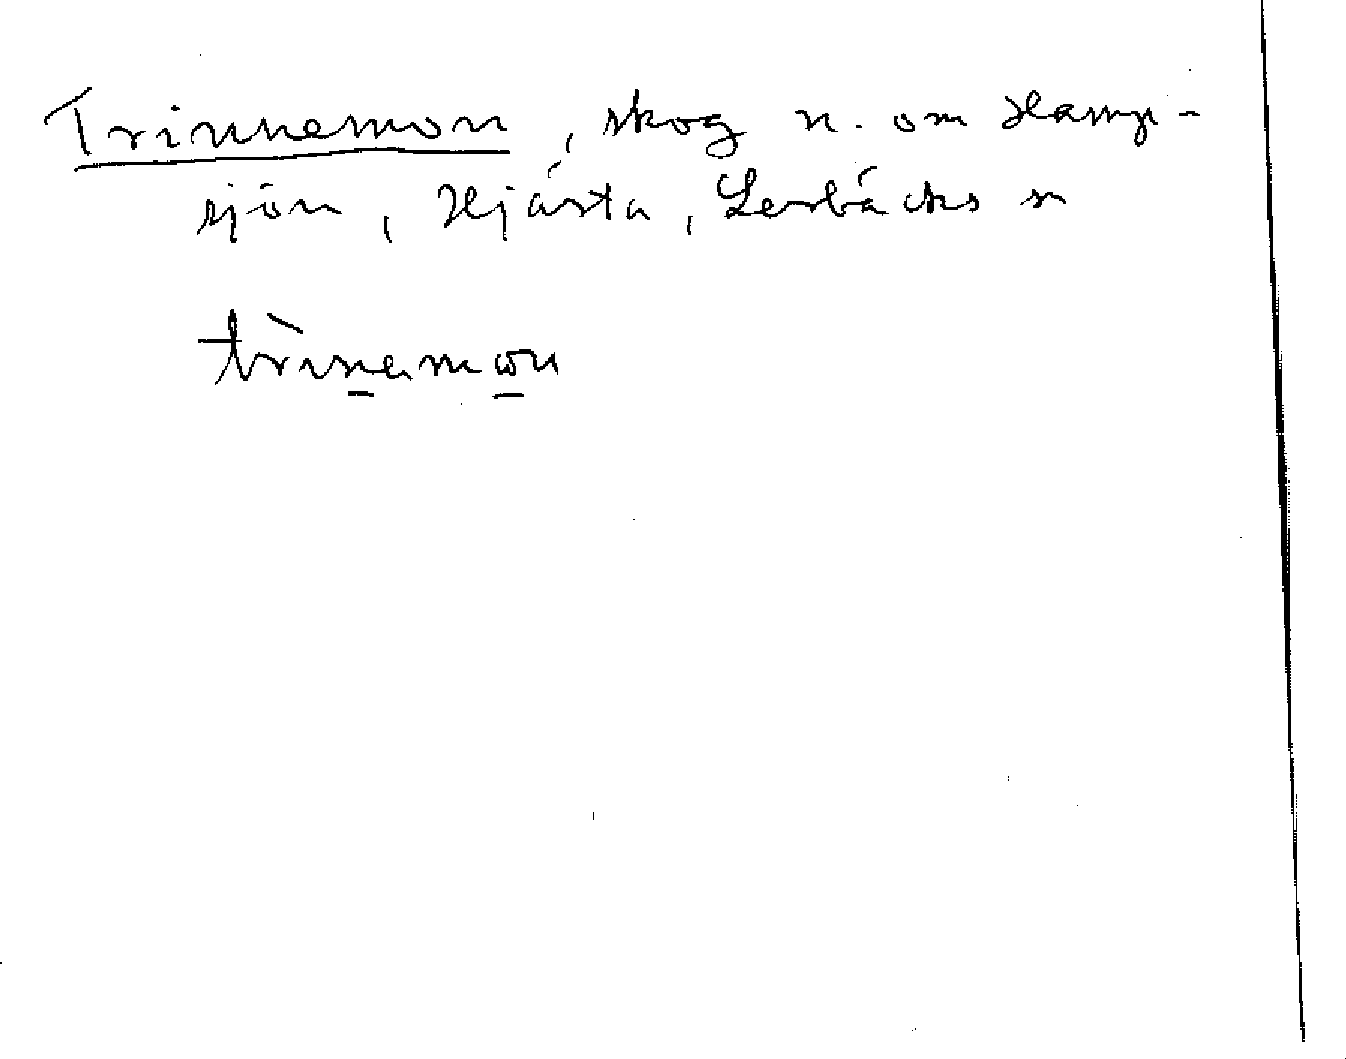 Trinnemon, skog n. om Hamp-
sjön, Hjärta, Lerbäcks sn
trinamon